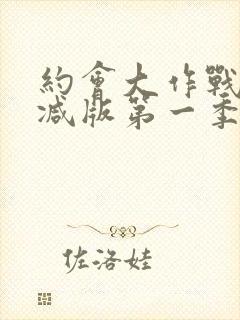 約會大作戰
減版第一季
佐洛娃